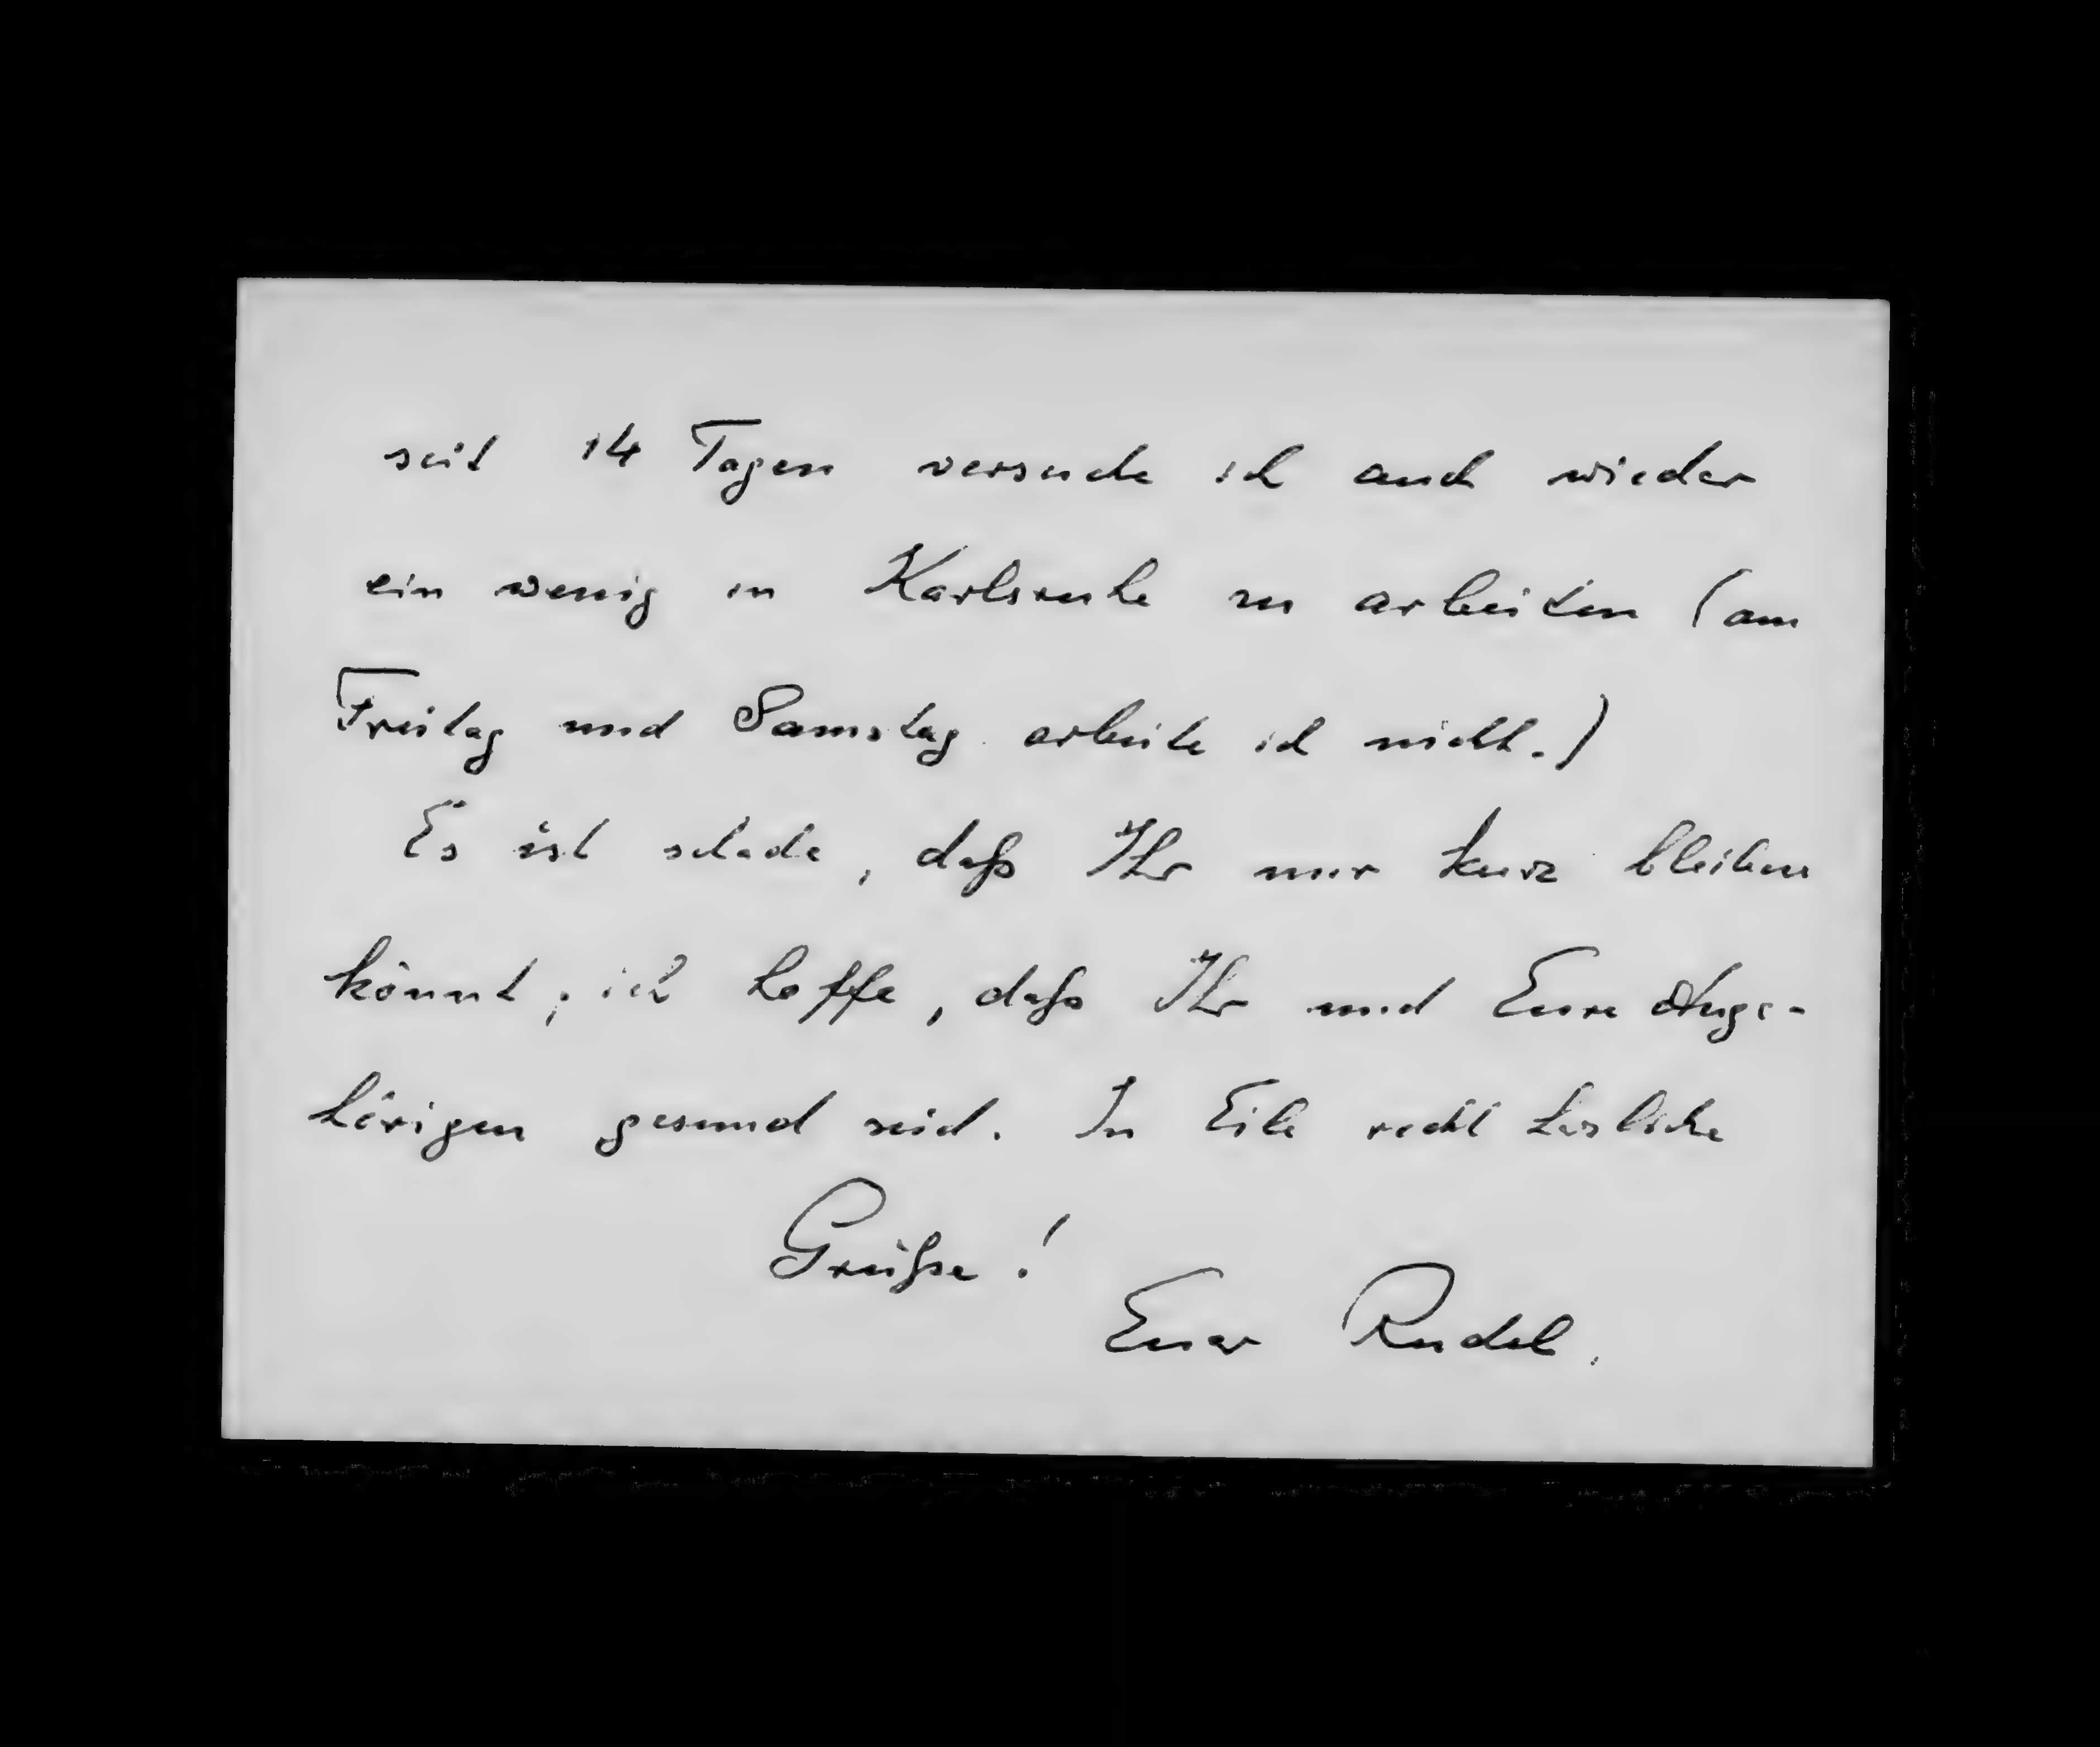 seit 14 Tagen versuche ich auch wieder
ein wenig in Karlsruhe zu arbeiten (am
Freitag und Samstag arbeite ich nicht.)
Es ist schade, daß Ihr nur kurz bleiben
könnt; ich hoffe, daß Ihr und Eure Ange-
hörigen gesund seid. In Eile recht herzliche
Grüße!
Euer Rudel.